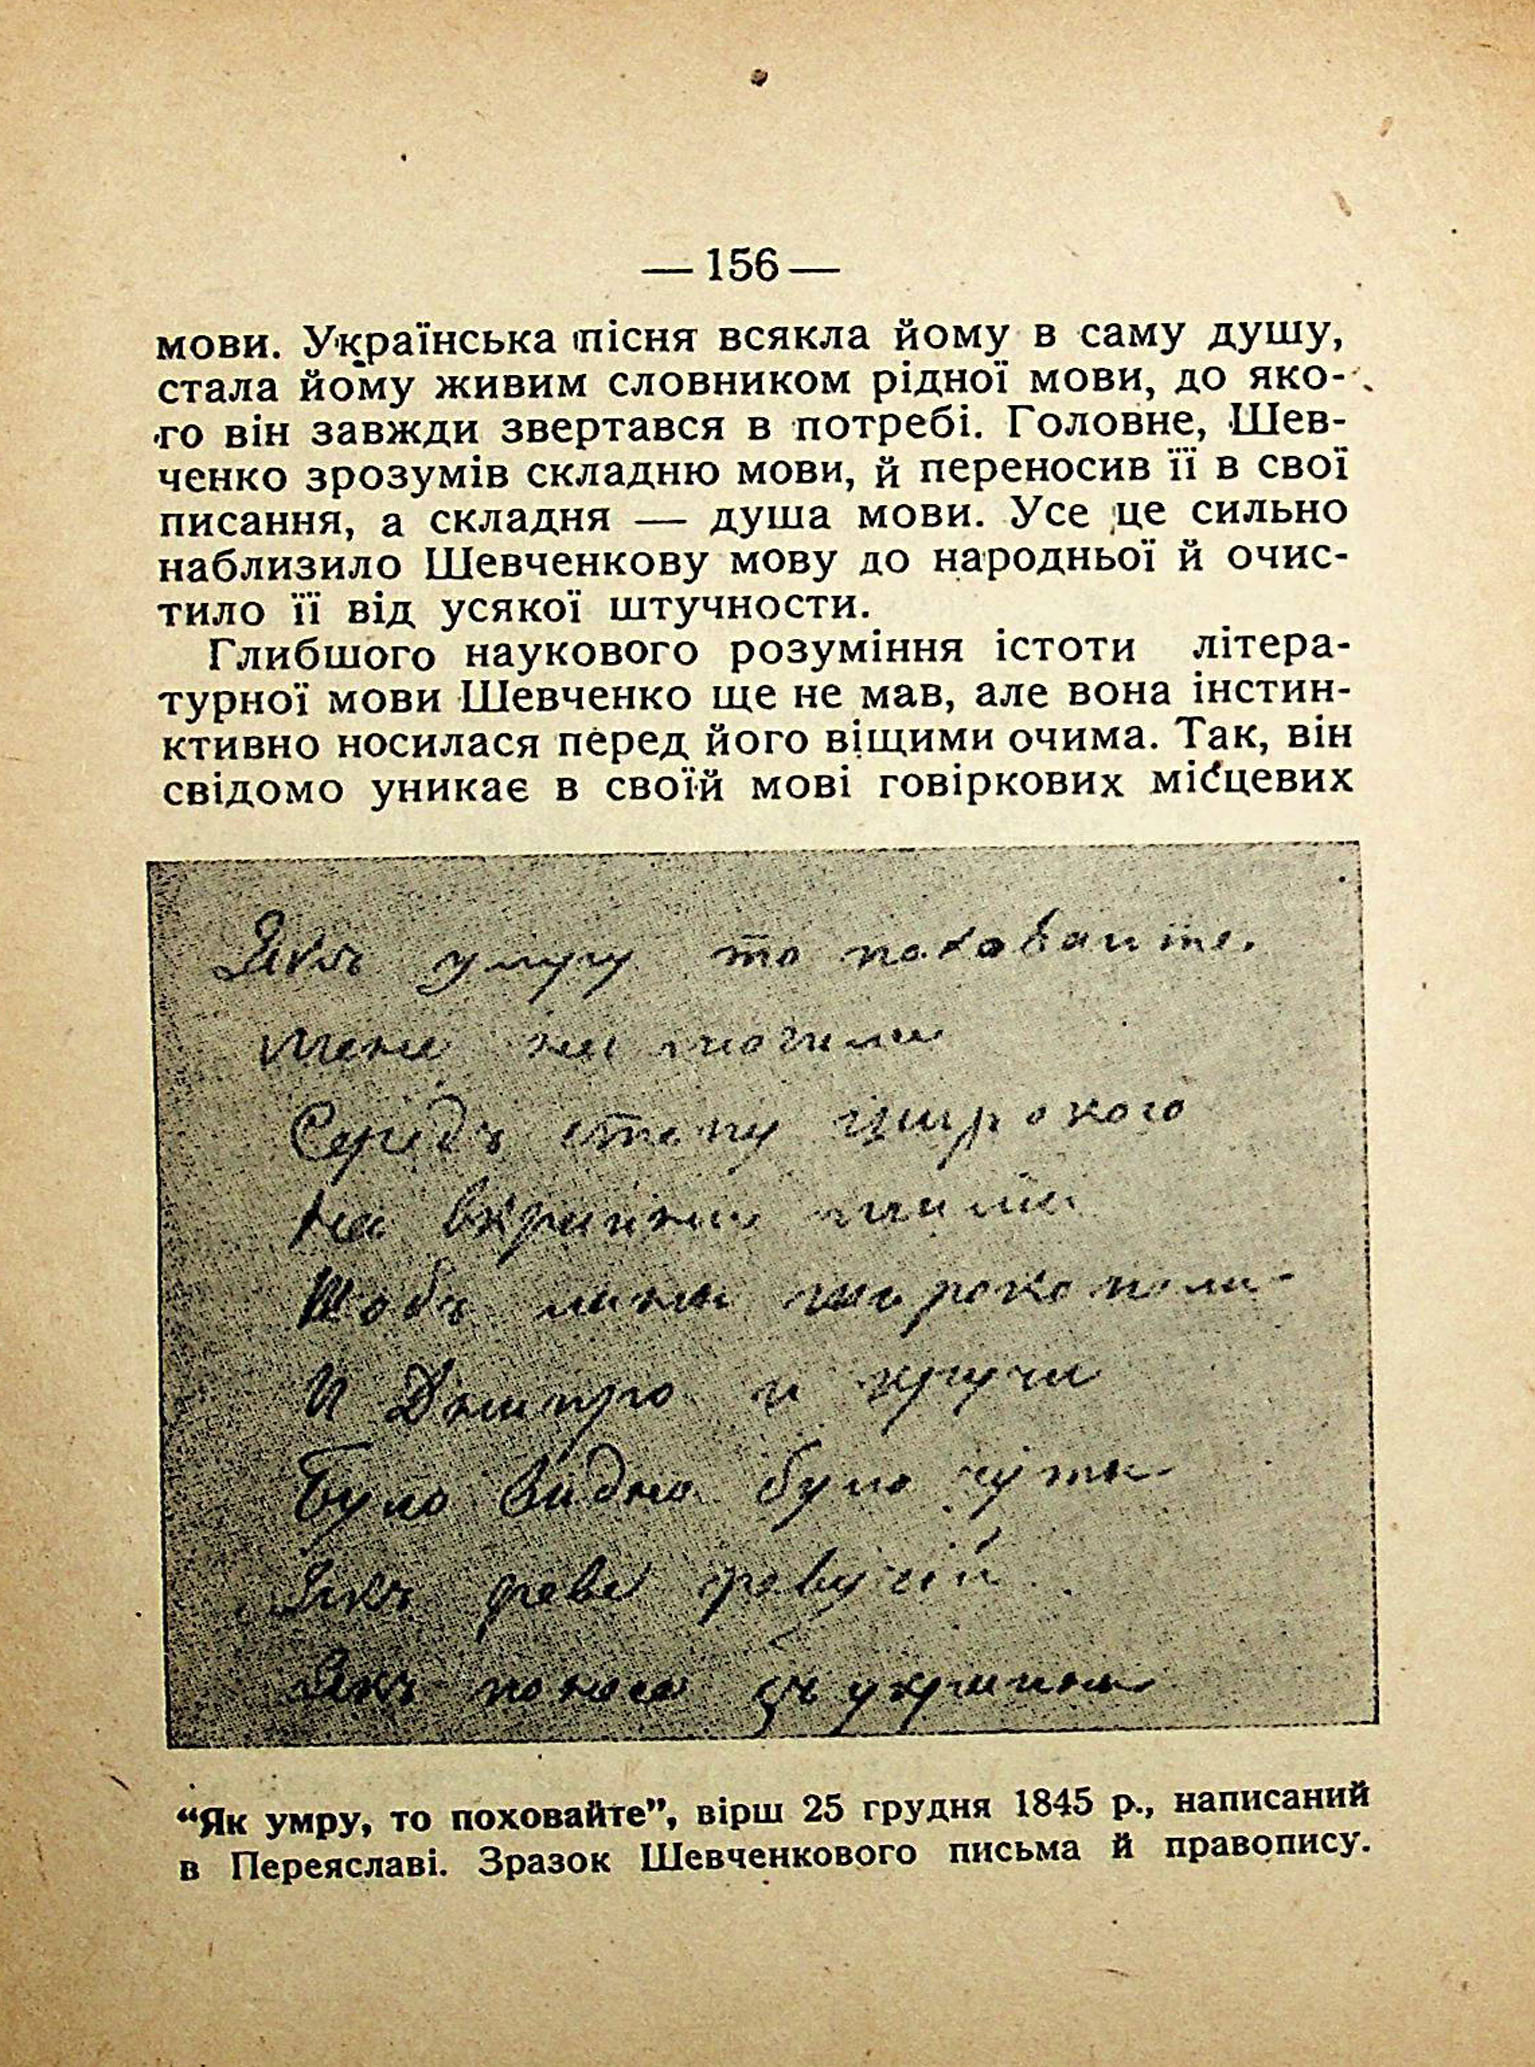 — 156 —
мови. Українська пісня всякла йому в саму душу,
стала йому живим словником рідної мови, до яко-
го він завжди звертався в потребі. Головне, Шев-
ченко зрозумів складню мови, й переносив її в свої
писання, а складня — душа мови. Усе це сильно
наблизило Шевченкову мову до народньої й очис-
тило її від усякої штучности.
Глибшого наукового розуміння істоти літера-
турної мови Шевченко ще не мав, але вона інстин-
ктивно носилася перед його віщими очима. Так, він
свідомо уникає в своїй мові говіркових місцевих
Якъ умру то поховайте
Мене на могили
Середъ степу широкого
На Вкраини милій
Щобъ ланы широкополи
И Днипро и кручи
Було видно було чуты
Якъ реве ревучій
Якъ понесе зъ украины
“Як умру, то поховайте”, вірш 25 грудня 1845 р., написаний
в Переяславі. Зразок Шевченкового письма й правопису.